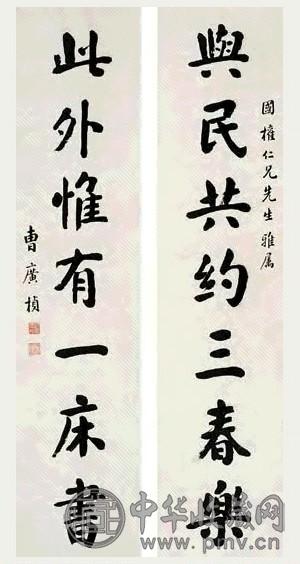 國權仁兄先生雅属
與民共约三春樂
此外惟有一床書
曹廣楨
中华收藏网
www.pmv.cn